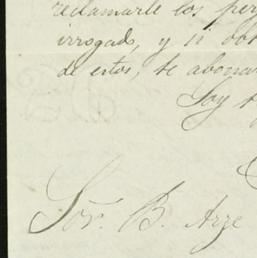 reclamarle los per
irrogado, y si obt
de estos, se abonar
Soy
Sor. B. Arze